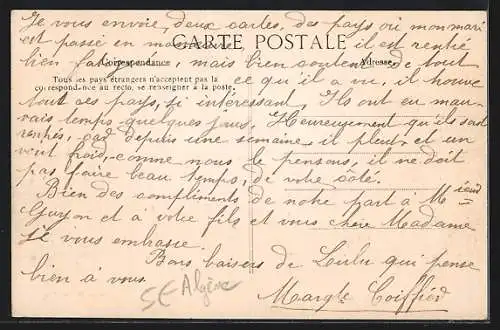 Je vous envoie, deux cartes, des pays où mon mari
est passé en manoeuvre
CARTE POSTALE
il est rentré
bien fatigué, mais bien content de tout
Correspondance
Adresse
ce qu'il a vu, il trouve
Tous les pays étrangers n'acceptent pas la
correspondance au recto, se renseigner à la poste.
tout ces pays, si intéressant, Ils ont eu mau-
vais temps quelques jours. Heureusement qu'ils sont
rentrés, car depuis une semaine il pleut et un
vent froid, comme nous le pensons, il ne doit
pas faire beau temps, de votre côté.
Bien des compliments de notre part à M
Guyon et à votre fils et vous chère Madame
Je vous embrasse.
Bons baisers de Lulu qui pense
bien à vous
Algérie